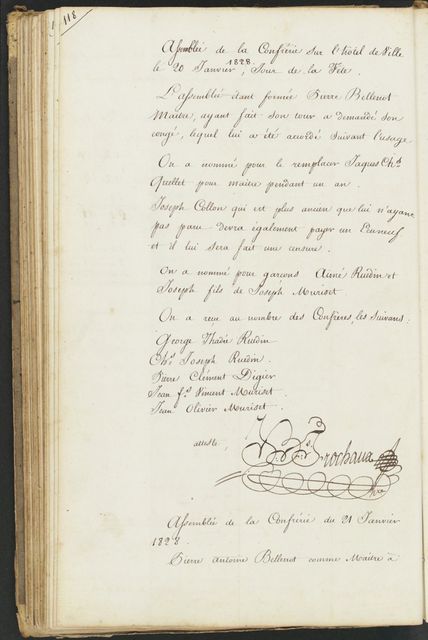 118
Assemblée de la Confrérie sur l'hôtel de Ville
le 20 Janvier 1828, Jour de la Fête.
L'assemblée étant formée Pierre Bellenot
Maitre, ayant fait son tour a demandé son
congé, lequel lui a été accordé suivant l'usage
On a nommé pour le remplacer Jaques Chs.
Quellet pour maitre pendant un an.
Joseph Collon qui est plus ancien que lui n'ayant
pas paru devra également payer un Ecuneuf
et il lui sera fait une censure.
On a nommé pour garçons Aimé Ruedin et
Joseph fils de Joseph Muriset.
On a reçu au nombre des Confrères, les Suivans:
George Thadée Ruedin
Chs. Joseph Ruedin.
Pierre Clément Digier
Jean fs. Vincent Muriset.
Jean Olivier Muriset.
atteste,
Frochaux
Assemblée de la Confrérie du 21 Janvier
1828.
Pierre Antoine Bellenot comme Maitre à